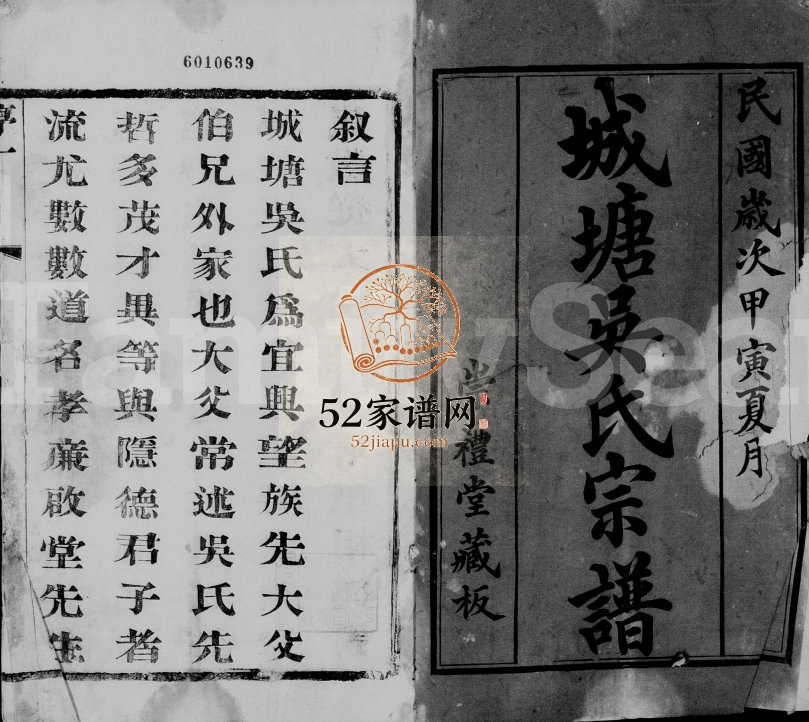 民國歲次甲寅夏月
城塘吳氏宗譜
禮堂藏板
6010639
叙言
城塘吳氏為宜興望族先大父
伯兄外家也大父常述吳氏先
哲多茂才異等與隱德君子者
流尤數數道名孝廉啟堂先生
序一
52家谱网
52jiapu.com
FamilySear